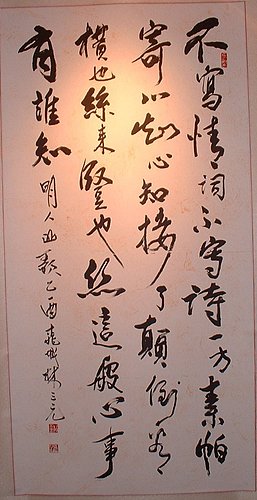 不寫情詞不寫詩一方素帕
寄心知心知接了顛倒看
橫也絲來豎也絲這般心事
有誰知
明人山歌乙酉林三元